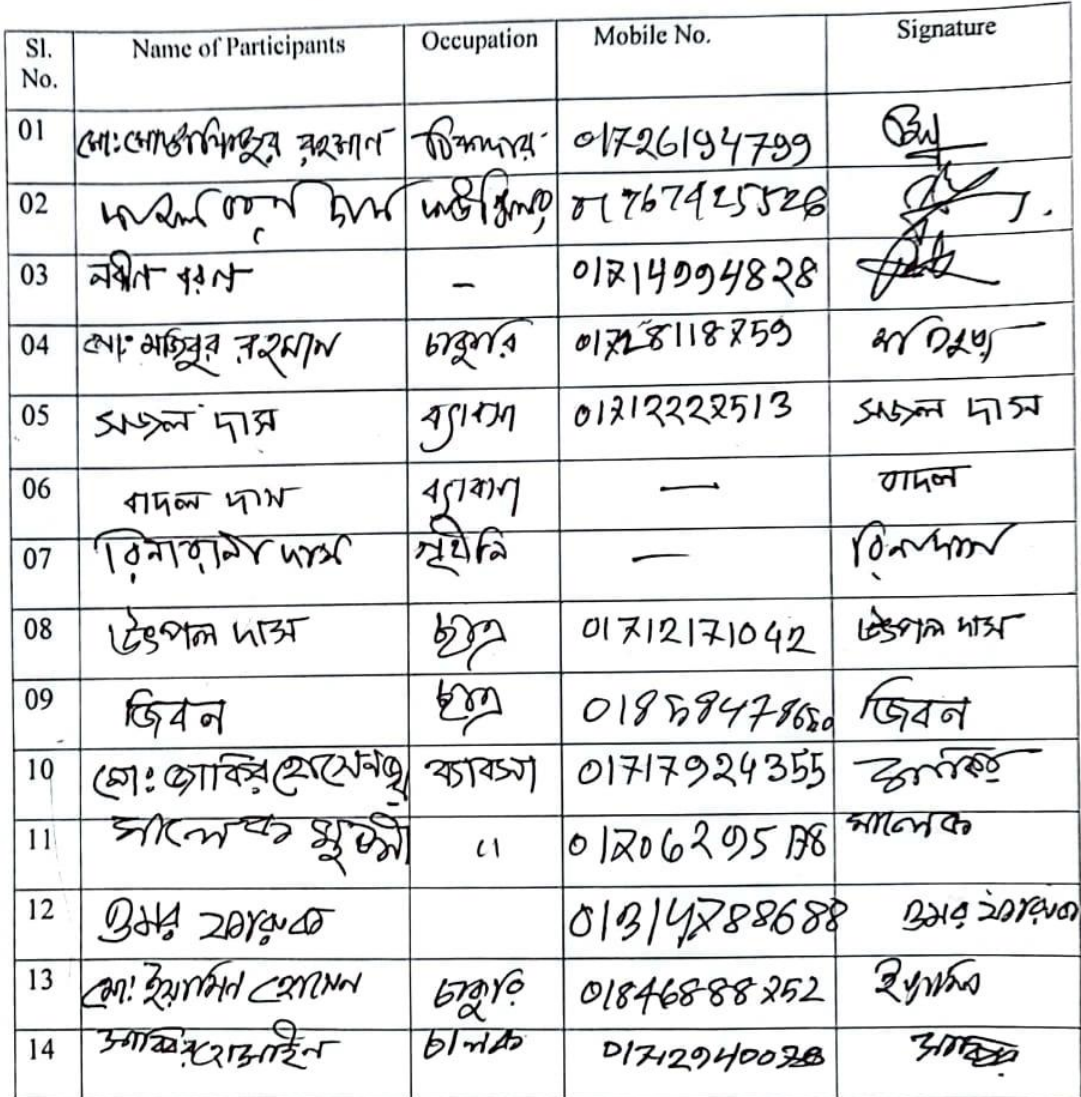 Sl. No. Name of Participants Occupation Mobile No. Signature
01 মো: রহমান 01726194799
02 দাস
03 নবীন বরণ – 01714994828
04 মো: মজিবুর রহমান চাকুরি 01728118759
05 সজল দাস ব্যাবসা 01712222513 সজল দাস
06 বাদল দাস ব্যাবসা — বাদল
07 রিনা রানী দাস গৃহীনি — রিনা দাস
08 উৎপল দাস ছাত্র 01712171042 উৎপল দাস
09 জিবন ছাত্র জিবন
10 মো: জাকির হোসেন ব্যাবসা 01717924355 জাকির
11 সালেক মুন্সী 11 সালেক
12 ওমর ফারুক 01314788688 ওমর ফারুক
13 মো: ইয়ামিন হোসেন চাকুরি 01846888252 ইয়ামিন
14 চালক